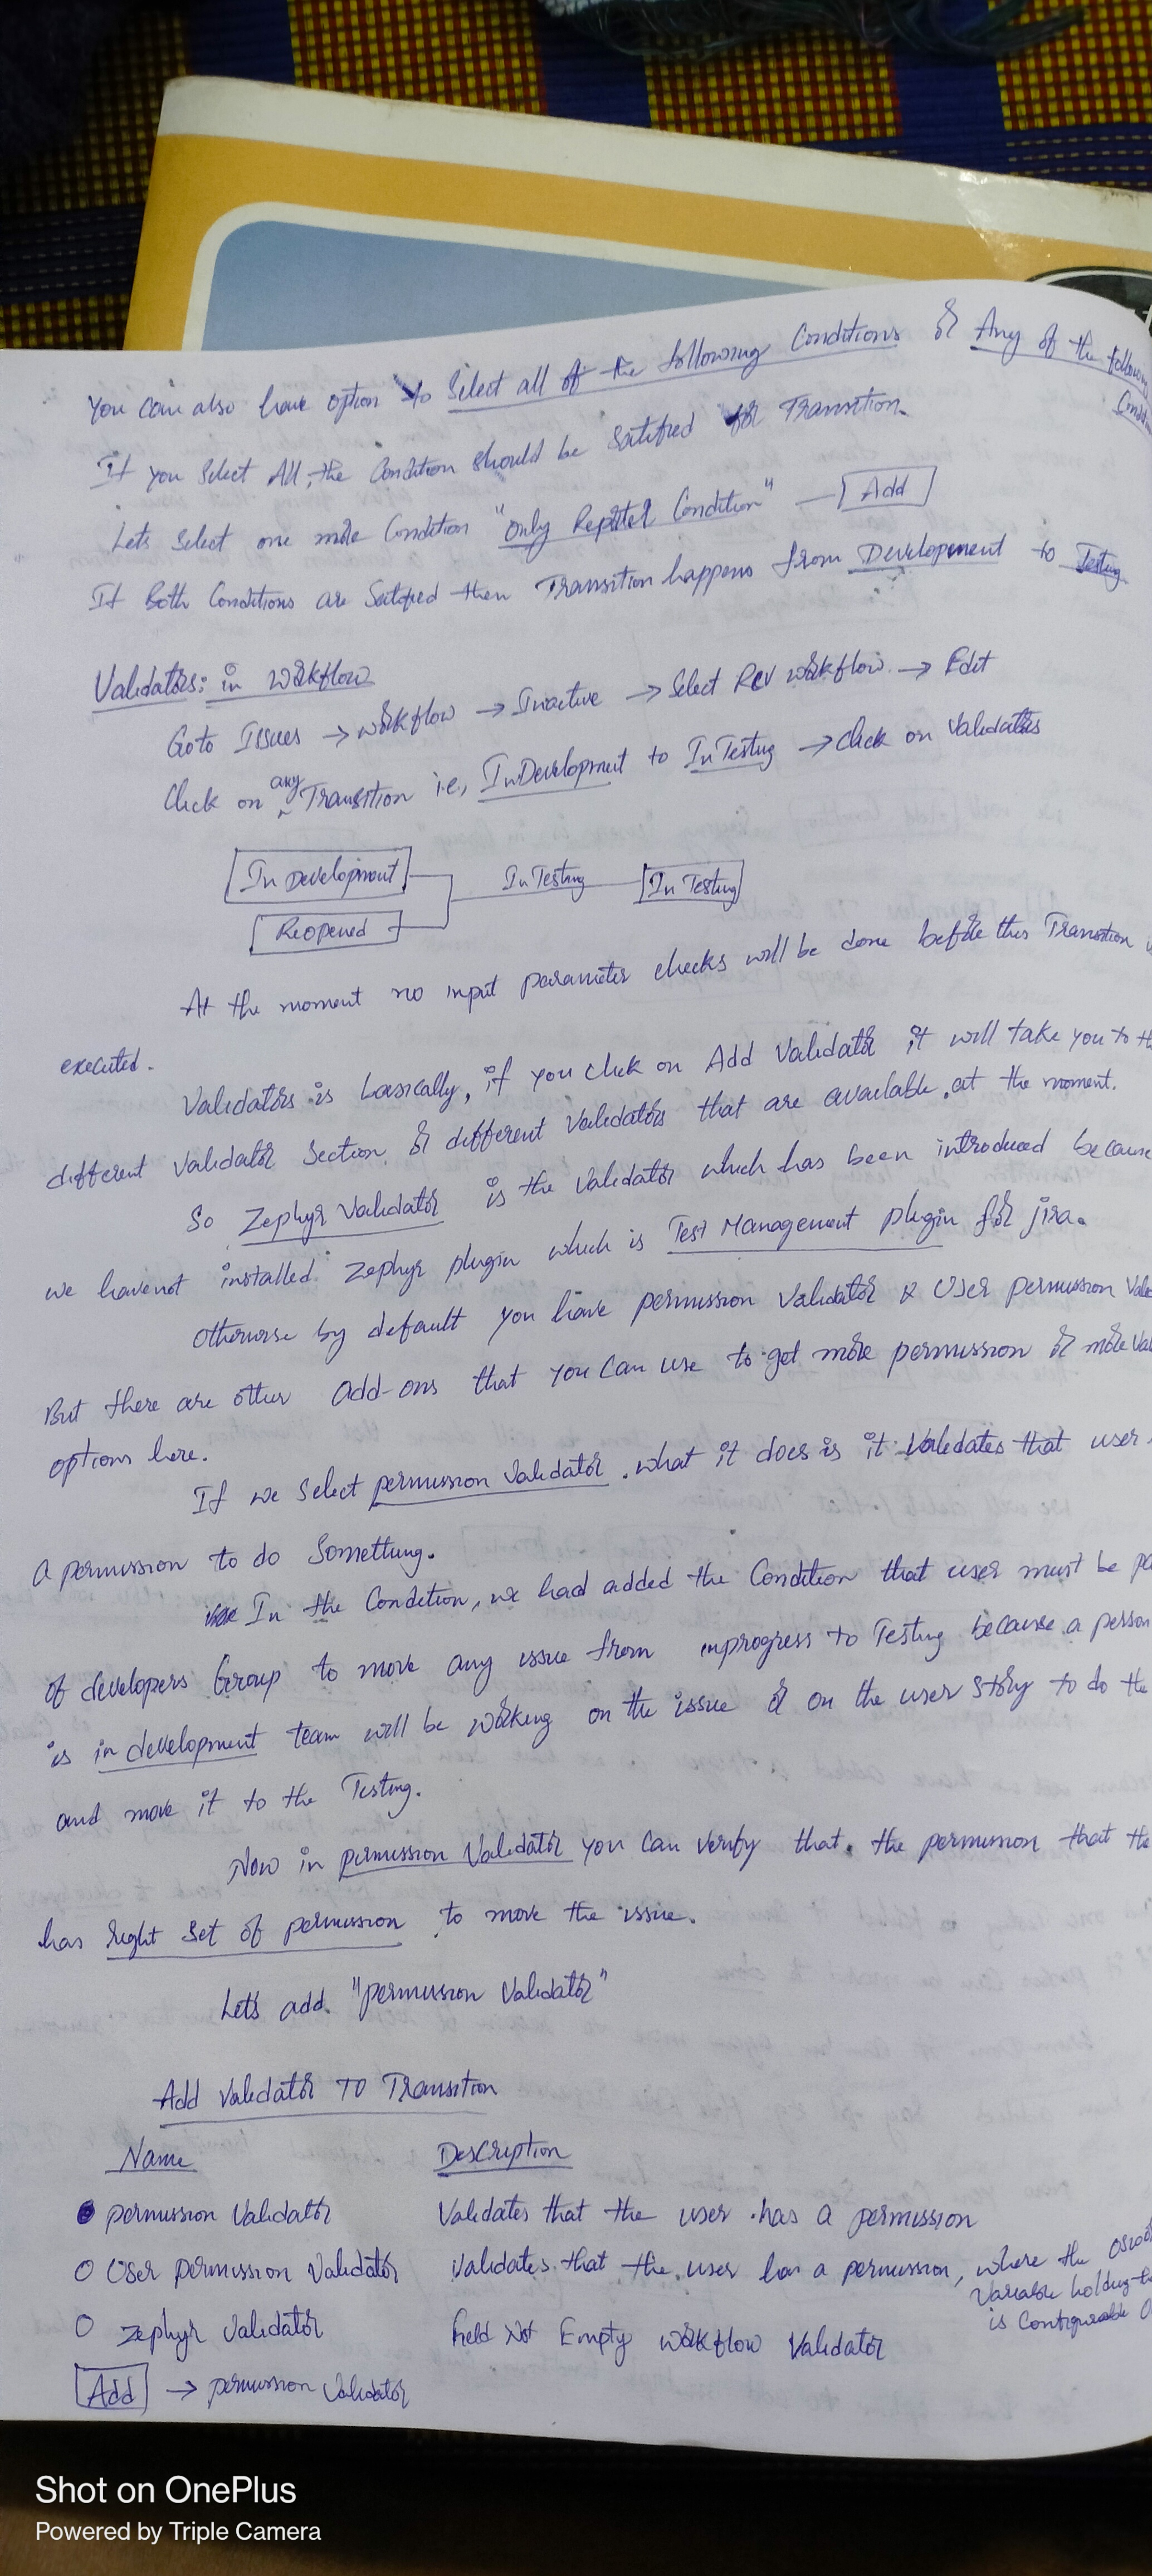 You can also have option to Select all of the following Conditions or Any of the following
Condi
If you Select All, the Condition should be Satified for Transition.
Lets Select one more Condition "Only Reporter Condition" — Add
If Both Conditions are Satified then Transition happens from Development to Testing
Validators: in workflow
Goto Issues → workflow → Inactive → Select Rev workflow → Edit
Click on any Transition i.e., InDevelopment to InTesting → click on Validators
In Development InTesting In Testing
Reopened
At the moment no input parameter checks will be done before this Transition
executed.
Validators is basically, if you click on Add Validator it will take you to
different Validator Section or different Validators that are available at the moment.
So Zephyr Validator is the Validator which has been introduced because
we have not installed Zephyr plugin which is Test Management plugin for jira.
Otherwise by default you have permission Validator & User permission
But there are other add-ons that you can use to get more permission or more
options here.
If we Select permission Validator. what it does is it Validates that user
a permission to do Something.
In the Condition, we had added the Condition that user must be
of developers Group to move any issue from inprogress to Testing because a person
is in development team will be working on the issue or on the user story to do the
and move it to the Testing.
Now in permission Validator you can verify that the permission that
has right set of permission to move the issue.
Let's add "permission Validator"
Add Validator To Transition
Name Description
permission Validator Validates that the user has a permission
User permission Validator Validates that the user has a permission, where the
Variable holding
is Configurable
Zephyr Validator Field Not Empty workflow Validator
Add → permission Validator
Shot on OnePlus
Powered by Triple Camera